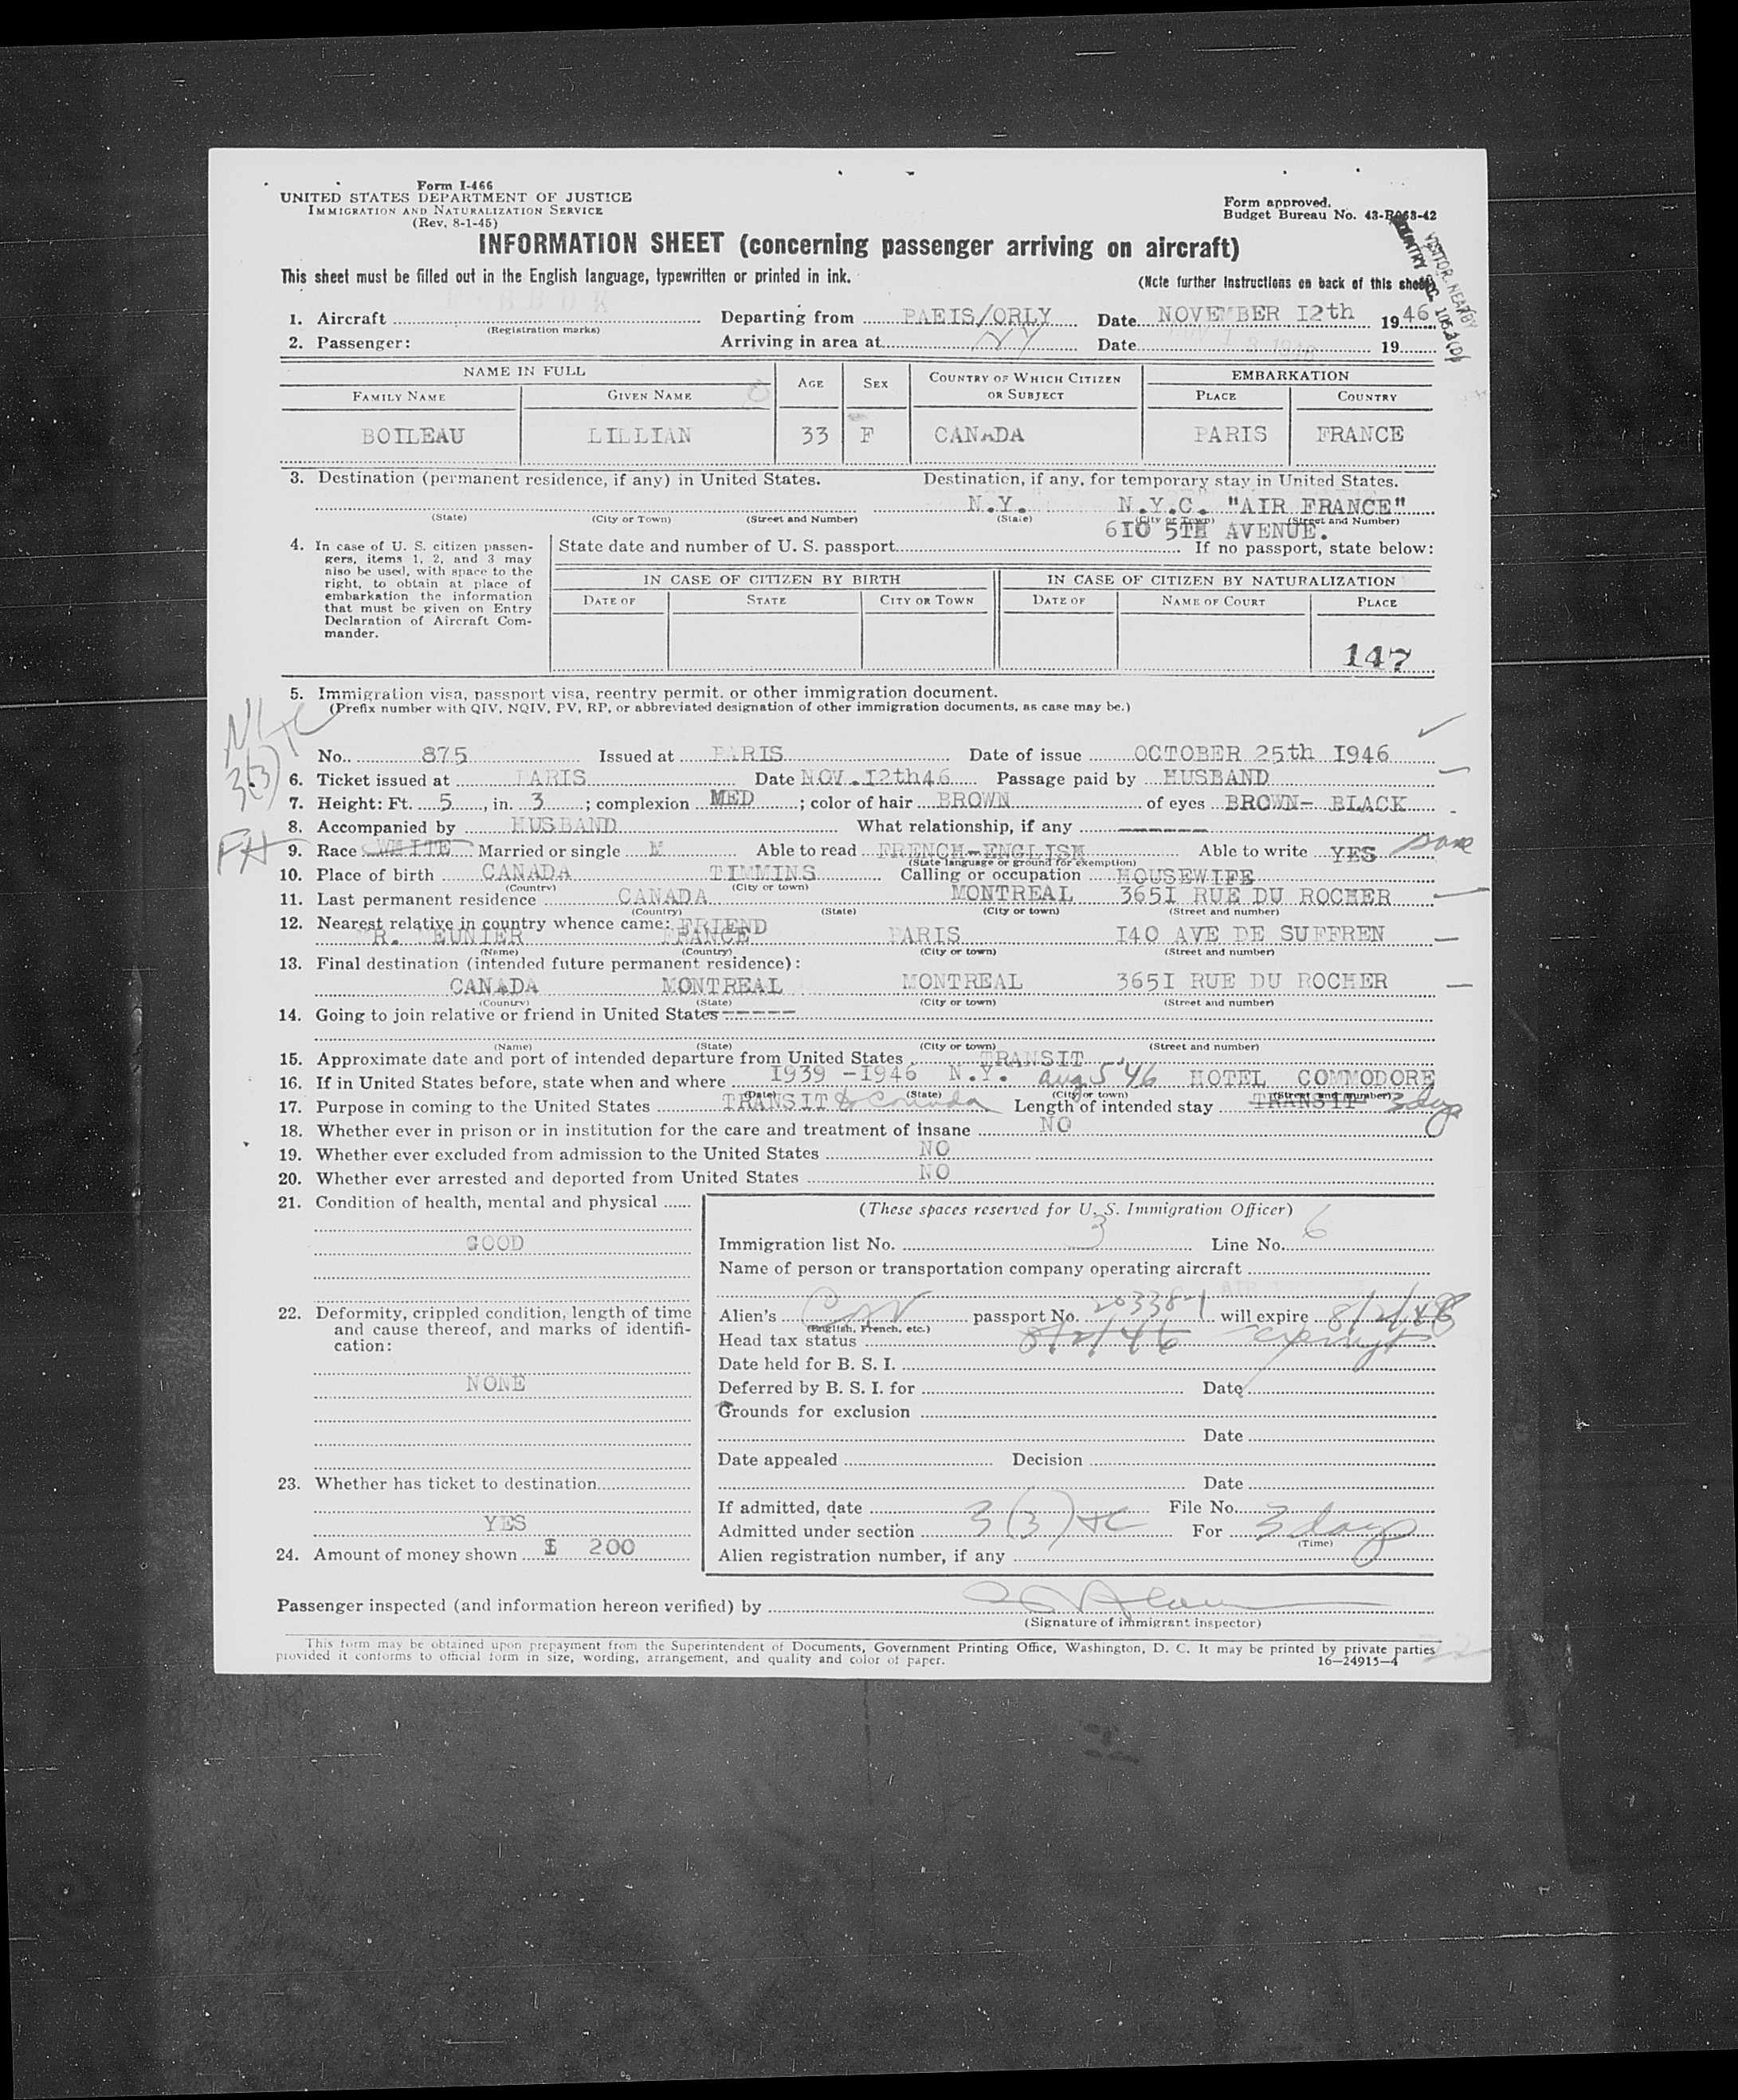 Form I-466
UNITED STATES DEPARTMENT OF JUSTICE
IMMIGRATION AND NATURALIZATION SERVICE
(Rev. 8-1-45)
Form approved.
Budget Bureau No. 43-R063-42
INFORMATION SHEET (concerning passenger arriving on aircraft)
This sheet must be filled out in the English language, typewritten or printed in ink. (Note further instructions on back of this sheet)
VISITOR NEARBY
COUNTRY SEC. 105.3(D)
1. Aircraft Departing from PAEIS/ORLY Date NOVEMBER I2th 1946
(Registration marks)
2. Passenger: Arriving in area at NY Date 19
NAME IN FULL AGE SEX COUNTRY OF WHICH CITIZEN OR SUBJECT EMBARKATION
FAMILY NAME GIVEN NAME PLACE COUNTRY
BOILEAU LILLIAN 33 F CANADA PARIS FRANCE
3. Destination (permanent residence, if any) in United States. Destination, if any, for temporary stay in United States.
N.Y. N.Y.C. "AIR FRANCE"
(State) (City or Town) (Street and Number) (State) (City or Town) (Street and Number)
6I0 5TH AVENUE.
4. In case of U. S. citizen passengers, items 1, 2, and 3 may also be used, with space to the right, to obtain at place of embarkation the information that must be given on Entry Declaration of Aircraft Commander.
State date and number of U. S. passport If no passport, state below:
IN CASE OF CITIZEN BY BIRTH IN CASE OF CITIZEN BY NATURALIZATION
DATE OF STATE CITY OR TOWN DATE OF NAME OF COURT PLACE
147
5. Immigration visa, passport visa, reentry permit, or other immigration document.
(Prefix number with QIV, NQIV, PV, RP, or abbreviated designation of other immigration documents, as case may be.)
3(3)
No. 875 Issued at PARIS Date of issue OCTOBER 25th I946
6. Ticket issued at PARIS Date NOV.I2th46 Passage paid by HUSBAND
7. Height: Ft. 5, in. 3; complexion MED; color of hair BROWN of eyes BROWN- BLACK
8. Accompanied by HUSBAND What relationship, if any ------
9. Race WHITE Married or single M Able to read FRENCH-ENGLISH Able to write YES same
FH
(State language or ground for exemption)
10. Place of birth CANADA TIMMINS Calling or occupation HOUSEWIFE
(Country) (City or town)
11. Last permanent residence CANADA MONTREAL 365I RUE DU ROCHER
(Country) (State) (City or town) (Street and number)
12. Nearest relative in country whence came: FRIEND
R. MEUNIER FRANCE PARIS I40 AVE DE SUFFREN
(Name) (Country) (City or town) (Street and number)
13. Final destination (intended future permanent residence):
CANADA MONTREAL MONTREAL 365I RUE DU ROCHER
(Country) (State) (City or town) (Street and number)
14. Going to join relative or friend in United States -----
(Name) (State) (City or town) (Street and number)
15. Approximate date and port of intended departure from United States TRANSIT
16. If in United States before, state when and where I939 -I946 N.Y. aug 5 46 HOTEL COMMODORE
(Date) (State) (City or town) (Street and number)
17. Purpose in coming to the United States TRANSIT to Canada Length of intended stay TRANSIT 3 days
18. Whether ever in prison or in institution for the care and treatment of insane NO
19. Whether ever excluded from admission to the United States NO
20. Whether ever arrested and deported from United States NO
21. Condition of health, mental and physical
GOOD
22. Deformity, crippled condition, length of time and cause thereof, and marks of identification:
NONE
23. Whether has ticket to destination
YES
24. Amount of money shown $ 200
(These spaces reserved for U. S. Immigration Officer)
Immigration list No. 3 Line No. 6
Name of person or transportation company operating aircraft
Alien's Can passport No. 203381 will expire 8/2/48
(English, French, etc.)
Head tax status 8/2/46 exempt
Date held for B. S. I.
Deferred by B. S. I. for Date
Grounds for exclusion
Date
Date appealed Decision
Date
If admitted, date File No.
Admitted under section 3(3) TC For 3 days
(Time)
Alien registration number, if any
Passenger inspected (and information hereon verified) by
(Signature of immigrant inspector)
This form may be obtained upon prepayment from the Superintendent of Documents, Government Printing Office, Washington, D. C. It may be printed by private parties
provided it conforms to official form in size, wording, arrangement, and quality and color of paper.
16—24915-4